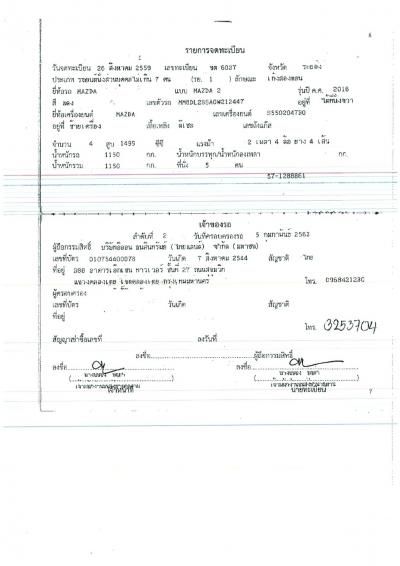 6
รายการจดทะเบียน
วันจดทะเบียน 26 สิงหาคม 2559 เลขทะเบียน ขต 6037 จังหวัด ระยอง
ประเภท รถยนต์นั่งส่วนบุคคลไม่เกิน 7 คน (รย. 1 ) ลักษณะ เก๋งสองตอน
ยี่ห้อรถ MAZDA แบบ MAZDA 2 รุ่นปี ค.ศ. 2016
สี แดง เลขตัวรถ อยู่ที่
ยี่ห้อเครื่องยนต์ MAZDA เลขเครื่องยนต์ S550204730
อยู่ที่ ซ้ายเครื่อง เชื้อเพลิง ดีเซล เลขถังแก๊ส
จำนวน 4 สูบ 1495 ซีซี แรงม้า 2 เพลา 4 ล้อ ยาง 4 เส้น
น้ำหนักรถ 1150 กก. น้ำหนักบรรทุก/น้ำหนักลงเพลา กก.
น้ำหนักรวม 1150 กก. ที่นั่ง 5 คน
57-1288861
เจ้าของรถ
ลำดับที่ 2 วันที่ครอบครองรถ 5 กุมภาพันธ์ 2563
ผู้ถือกรรมสิทธิ์ (ไทยแลนด์) จำกัด (มหาชน)
เลขที่บัตร วันเกิด 7 สิงหาคม 2544 สัญชาติ ไทย
ที่อยู่ 388 ชั้นที่ 27 ถนนสุขุมวิท
แขวงคลองเตย เขตคลองเตย กรุงเทพมหานคร โทร.
ผู้ครอบครอง
เลขที่บัตร วันเกิด สัญชาติ
ที่อยู่
โทร. 3253704
สัญญาเช่าซื้อเลขที่ ลงวันที่
ลงชื่อ ผู้ถือกรรมสิทธิ์
ลงชื่อ ลงชื่อ
เจ้าหน้าที่ นายทะเบียน
7